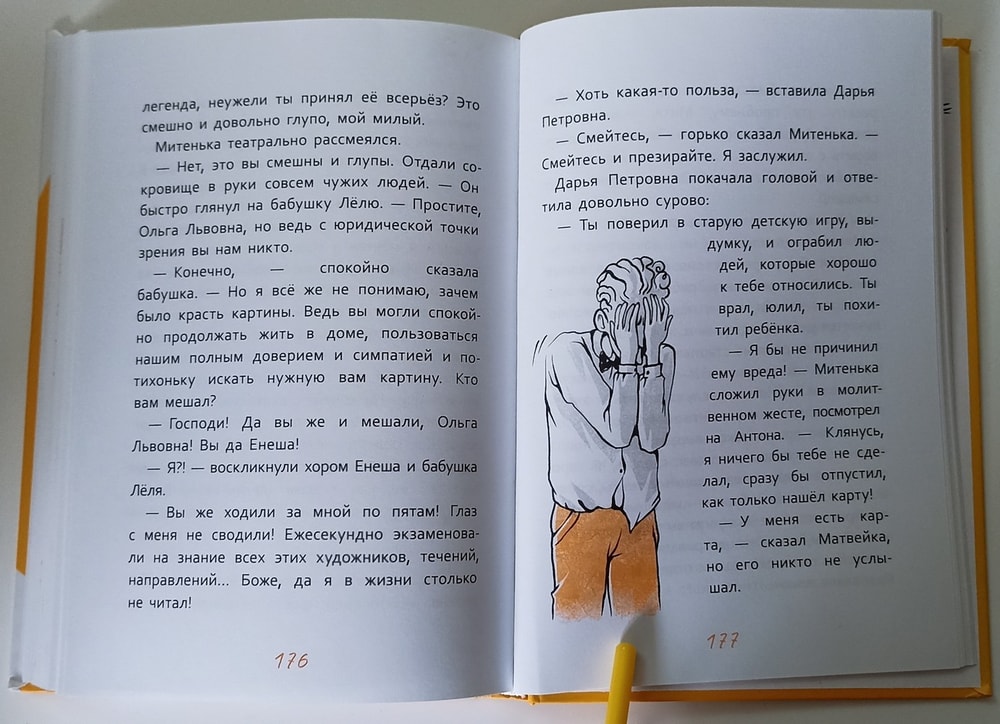 легенда, неужели ты принял её всерьёз? Это
смешно и довольно глупо, мой милый.
Митенька театрально рассмеялся.
— Нет, это вы смешны и глупы. Отдали со-
кровище в руки совсем чужих людей. — Он
быстро глянул на бабушку Лёлю. — Простите,
Ольга Львовна, но ведь с юридической точки
зрения вы нам никто.
— Конечно, — спокойно сказала
бабушка. — Но я всё же не понимаю, зачем
было красть картины. Ведь вы могли спокой-
но продолжать жить в доме, пользоваться
нашим полным доверием и симпатией и по-
тихоньку искать нужную вам картину. Кто
вам мешал?
— Господи! Да вы же и мешали, Ольга
Львовна! Вы да Енеша!
— Я?! — воскликнули хором Енеша и бабушка
Лёля.
— Вы же ходили за мной по пятам! Глаз
с меня не сводили! Ежесекундно экзаменова-
ли на знание всех этих художников, течений,
направлений... Боже, да я в жизни столько
не читал!
176
— Хоть какая-то польза, — вставила Дарья
Петровна.
— Смейтесь, — горько сказал Митенька. —
Смейтесь и презирайте. Я заслужил.
Дарья Петровна покачала головой и отве-
тила довольно сурово:
— Ты поверил в старую детскую игру, вы-
думку, и ограбил лю-
дей, которые хорошо
к тебе относились. Ты
врал, юлил, ты похи-
тил ребёнка.
— Я бы не причинил
ему вреда! — Митенька
сложил руки в молит-
венном жесте, посмотрел
на Антона. — Клянусь,
я ничего бы тебе не сде-
лал, сразу бы отпустил,
как только нашёл карту!
— У меня есть кар-
та, — сказал Матвейка,
но его никто не услы-
шал.
177